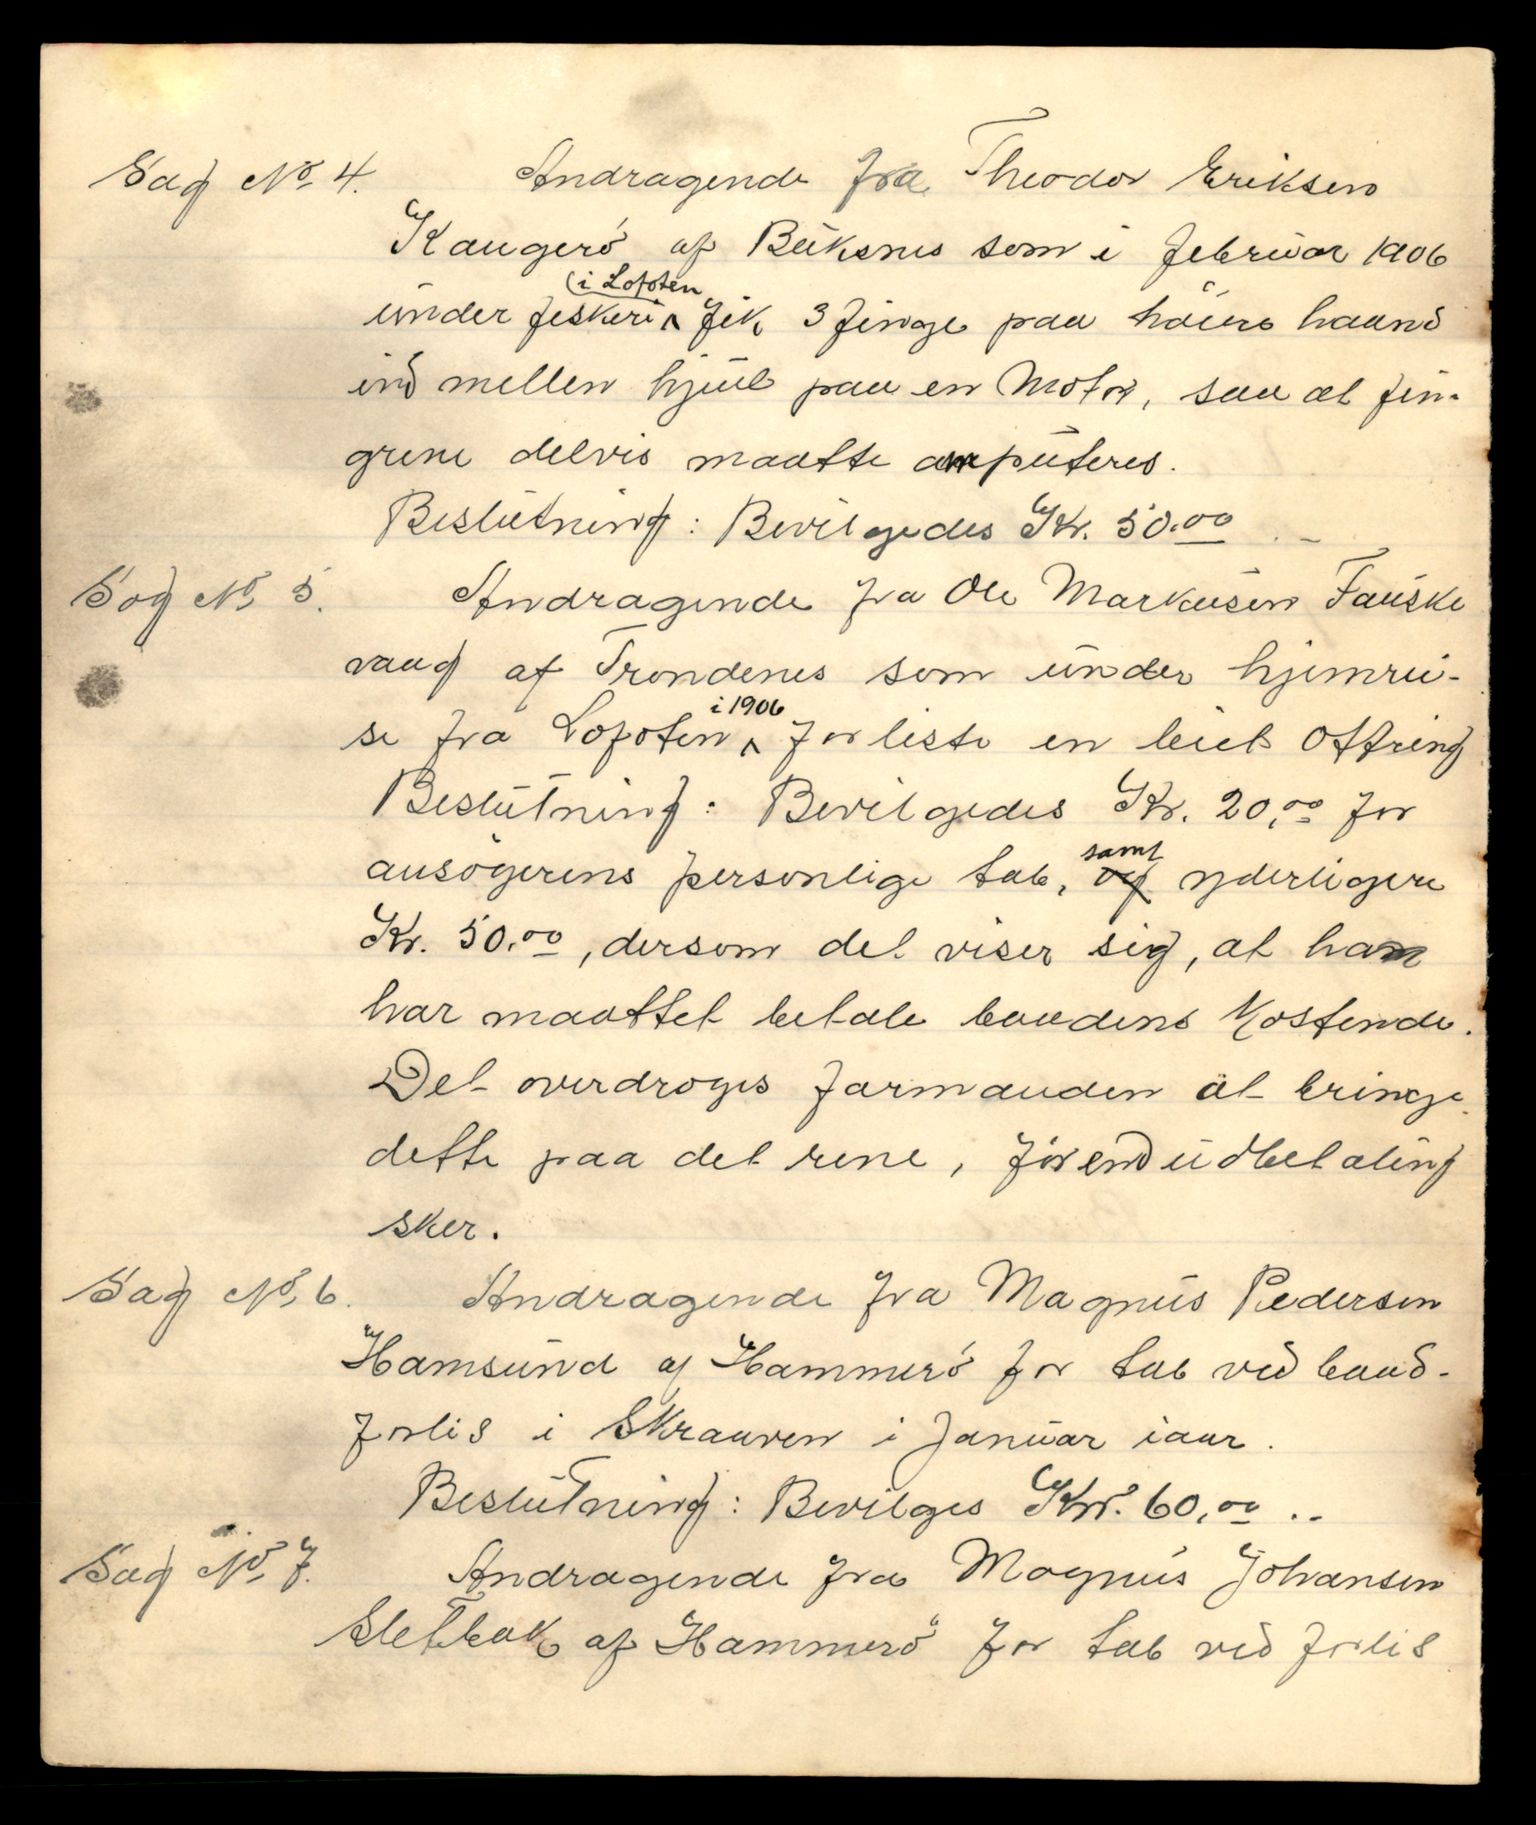 Sag No. 4. Andragende fra Theodor Eriksen
Kangerö af Buksnes som i februar 1906
under feskeri (i Lofoten fik 3 finge paa höire haand
ind mellen hjul paa en Motor, saa at fin-
grene delvis maatte amputeres.
Beslutning: Bevilgedes Kr. 50.00
Sag No. 5. Andragende fra Ole Markusen Fauske
vaag af Trondenes som under hjemrei-
se fra Lofoten i 1906 forliste en leiet Ottring
Beslutning: Bevilgedes Kr. 20,00 for
ansögerens personlige tab, og samt yderligere
Kr. 50.00, dersom det viser sig, at han
har maattet betale baadens Kostende.
Det overdroges formanden at bringe
dette paa det rene, förend udbetaling
sker.
Sag No. 6. Andragende fra Magnus Pedersen
Hamsund af Hammerö for tab ved baad-
forlis i Skraaven i Januar iaar.
Beslutning: Bevilges Kr. 60,00
Sag No. 7. Andragende fra Magnus Johansen
Sletbak af Hammerö for tab ved forlis